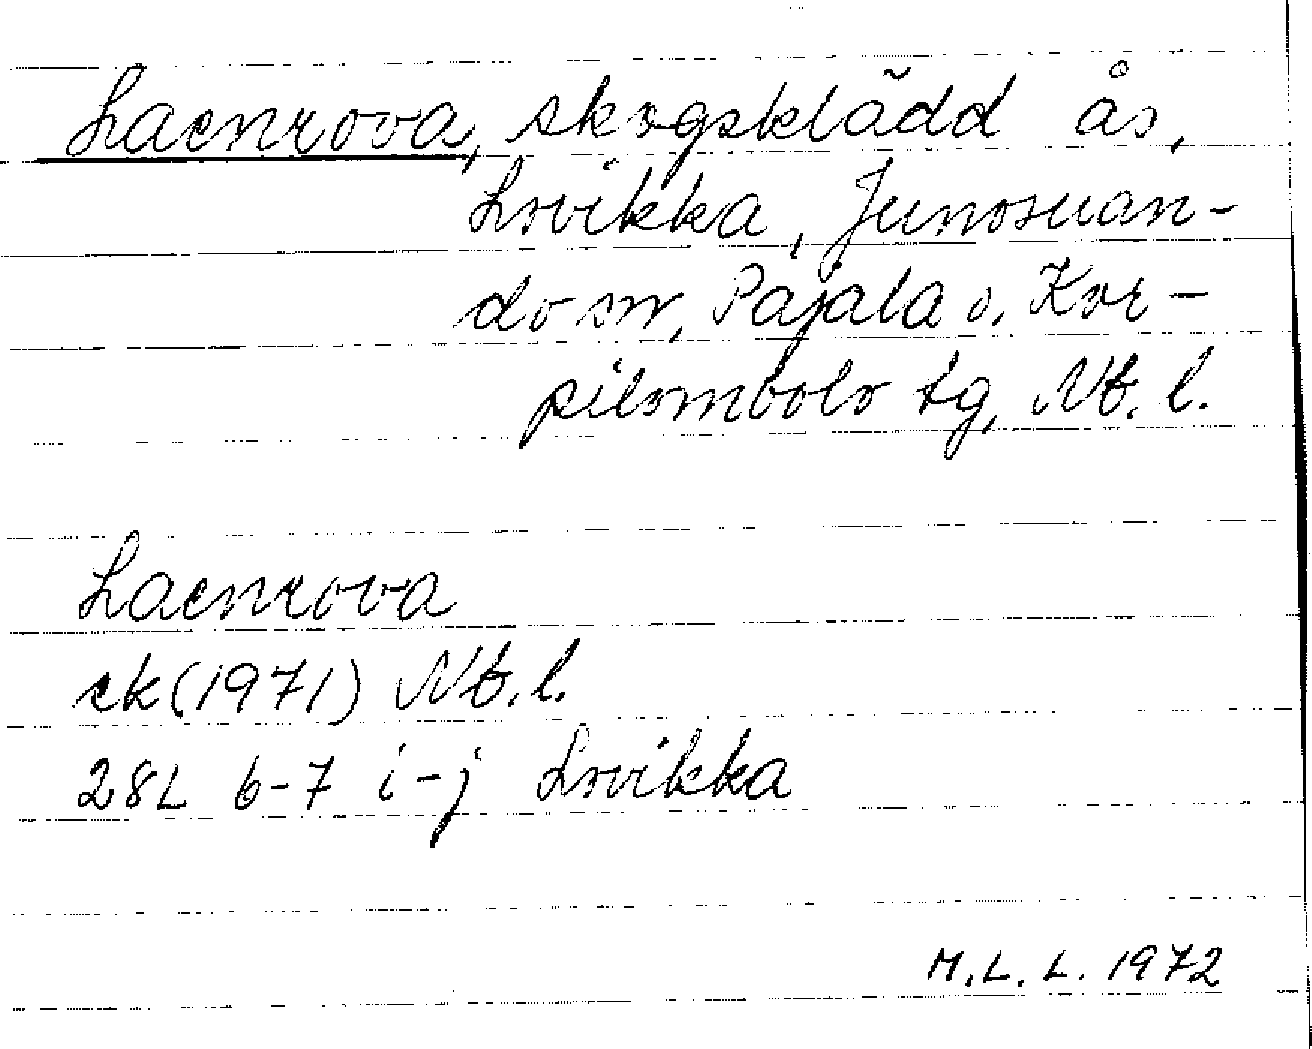 Laenrova, skogsklädd ås,
Lovikka, Junosuan-
do sn, Pajala o. Kor-
pilombolo tg, Nb. l.
Laenrova
ek (1971) Nb. l.
28L 6-7 i-j Lovikka
M.L.L. 1972